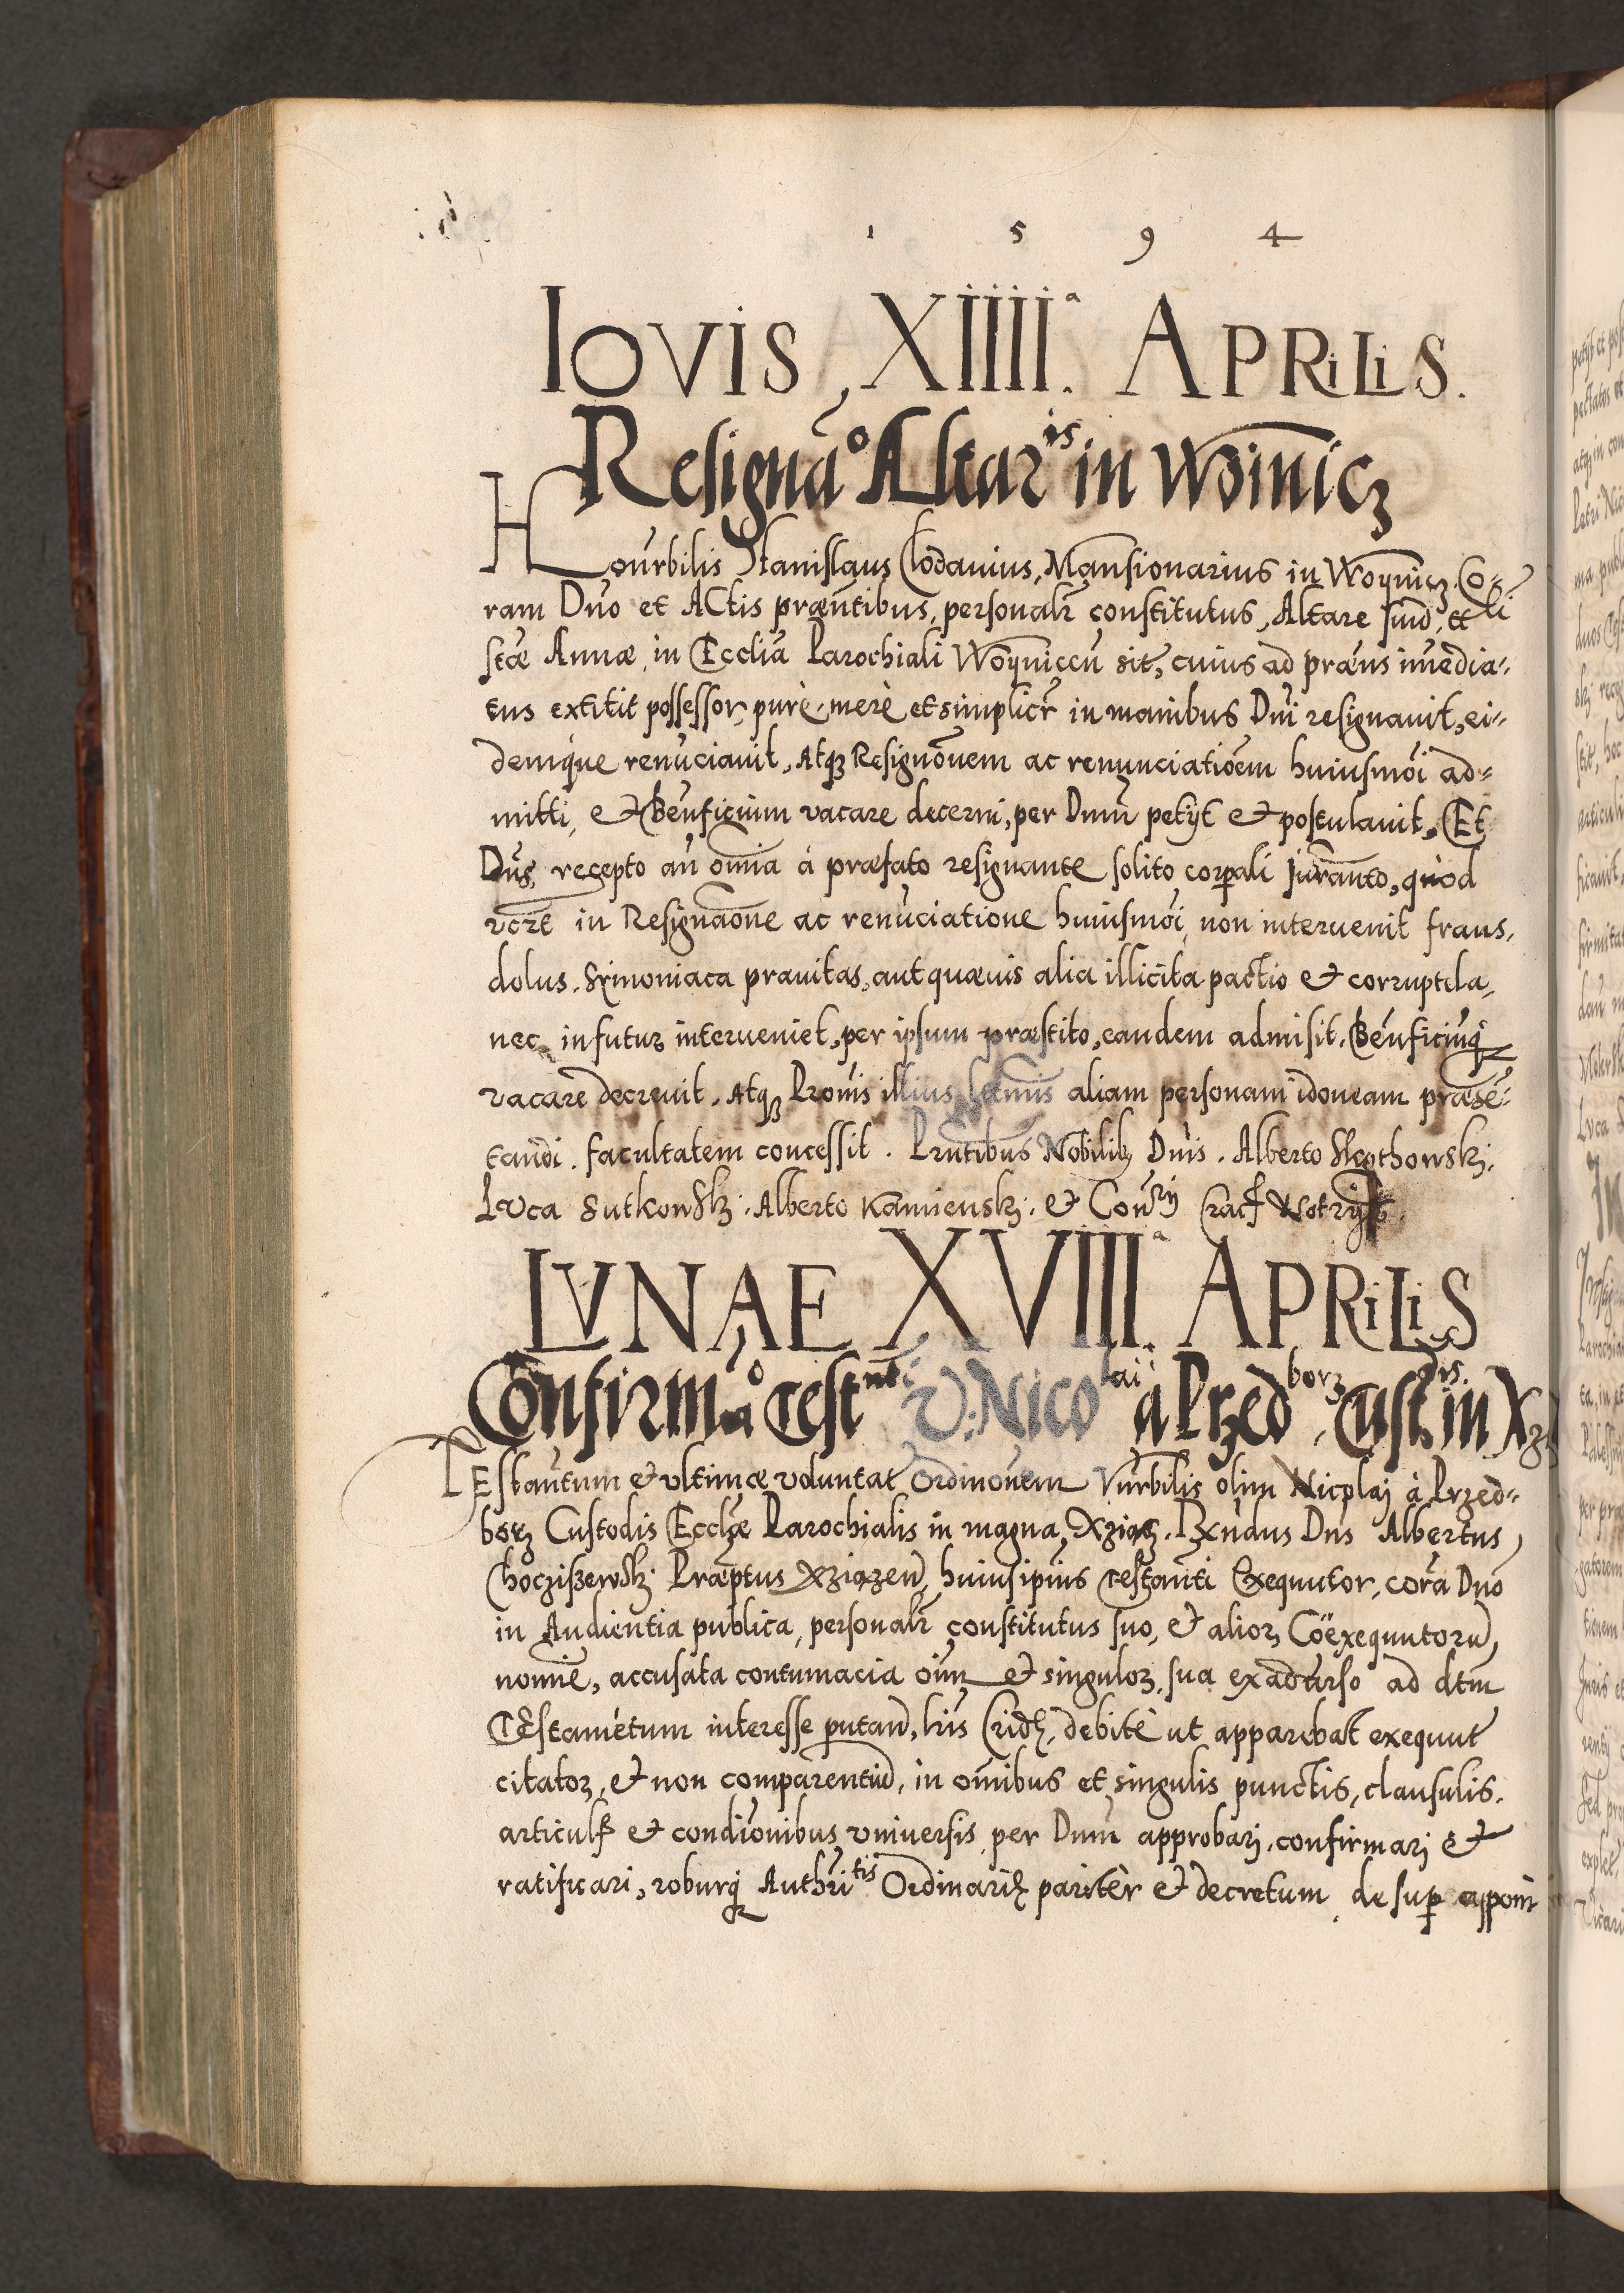 1 5 9 4
IOVIS XIIII.ª APRILIS.
Resignāo Altaris in Woinicz
Honrbilis Stanislaus Clodauius, Mansionarius in Woynicz, Co-
ram Dno et Actis præntibus, personalr constitutus, Altare sub titl
sctæ Annæ, in Ecclia Parochiali Woyniccn sit, cuius ad præns immedia-
tus extitit possessor, purè, merè et simplicr in manibus Dni resignauit, ei-
demque renunciauit, Atq3 Resignõnem ac renunciatioem huiusmoi ad-
mitti, et Benficium vacare decerni, per Dnum petÿt et postulauit, Et
Dns, recepto an omnia à præfato resignante solito corpali Juranto, quòd
in Resignaone ac renunciatione huiusmoi, non interuenit fraus,
dolus, Symoniaca prauitas, aut quæuis alia illicita pactio et corruptela,
nec in futur interueniet, per ipsum præstito, eandem admisit, Benficiuq3
vacare decreuit, Atq3 Pronis illius lætmis aliam personam idoneam præsé-
tandi, facultatem concessit. Prntibus Nobilib3 Dnis, Alberto
Luca Sutkowsk3, Alberto Kamiensk3, et Consrÿ Cracf Notrijs.
LVNAE XVIII.ª APRILIS
Confirmāo Testnti V. Nicolai à Przedborz Custdis. in Xz
Testantum et ultimæ voluntat Ordinonem Vnrbilis olim Nicolaj à Przed-
borz Custodis Ecclæ Parochialis in magna Xziąz, Rxndus Dns Albertus
Choczisewsk3 Præptus Xziązen, huiusipius testanti Exequutor, corā Dno
in Audientia publica, personalr constitutus suo, et alior3 Cöexequutorū,
nomie, accusata contumacia oim et singulor3, sua ex aduerso ad dtm
Testamétum interesse putan, lris Crid, debitè ut apparebat exequut
citator3, et non comparentiū, in omibus et singulis punctis, clausulis,
articulis et condionibus vniuersis, per Dnum approbarj, confirmarj et
ratificari, roburq3 Authritis Ordinariæ paritèr et decretum desup apponi